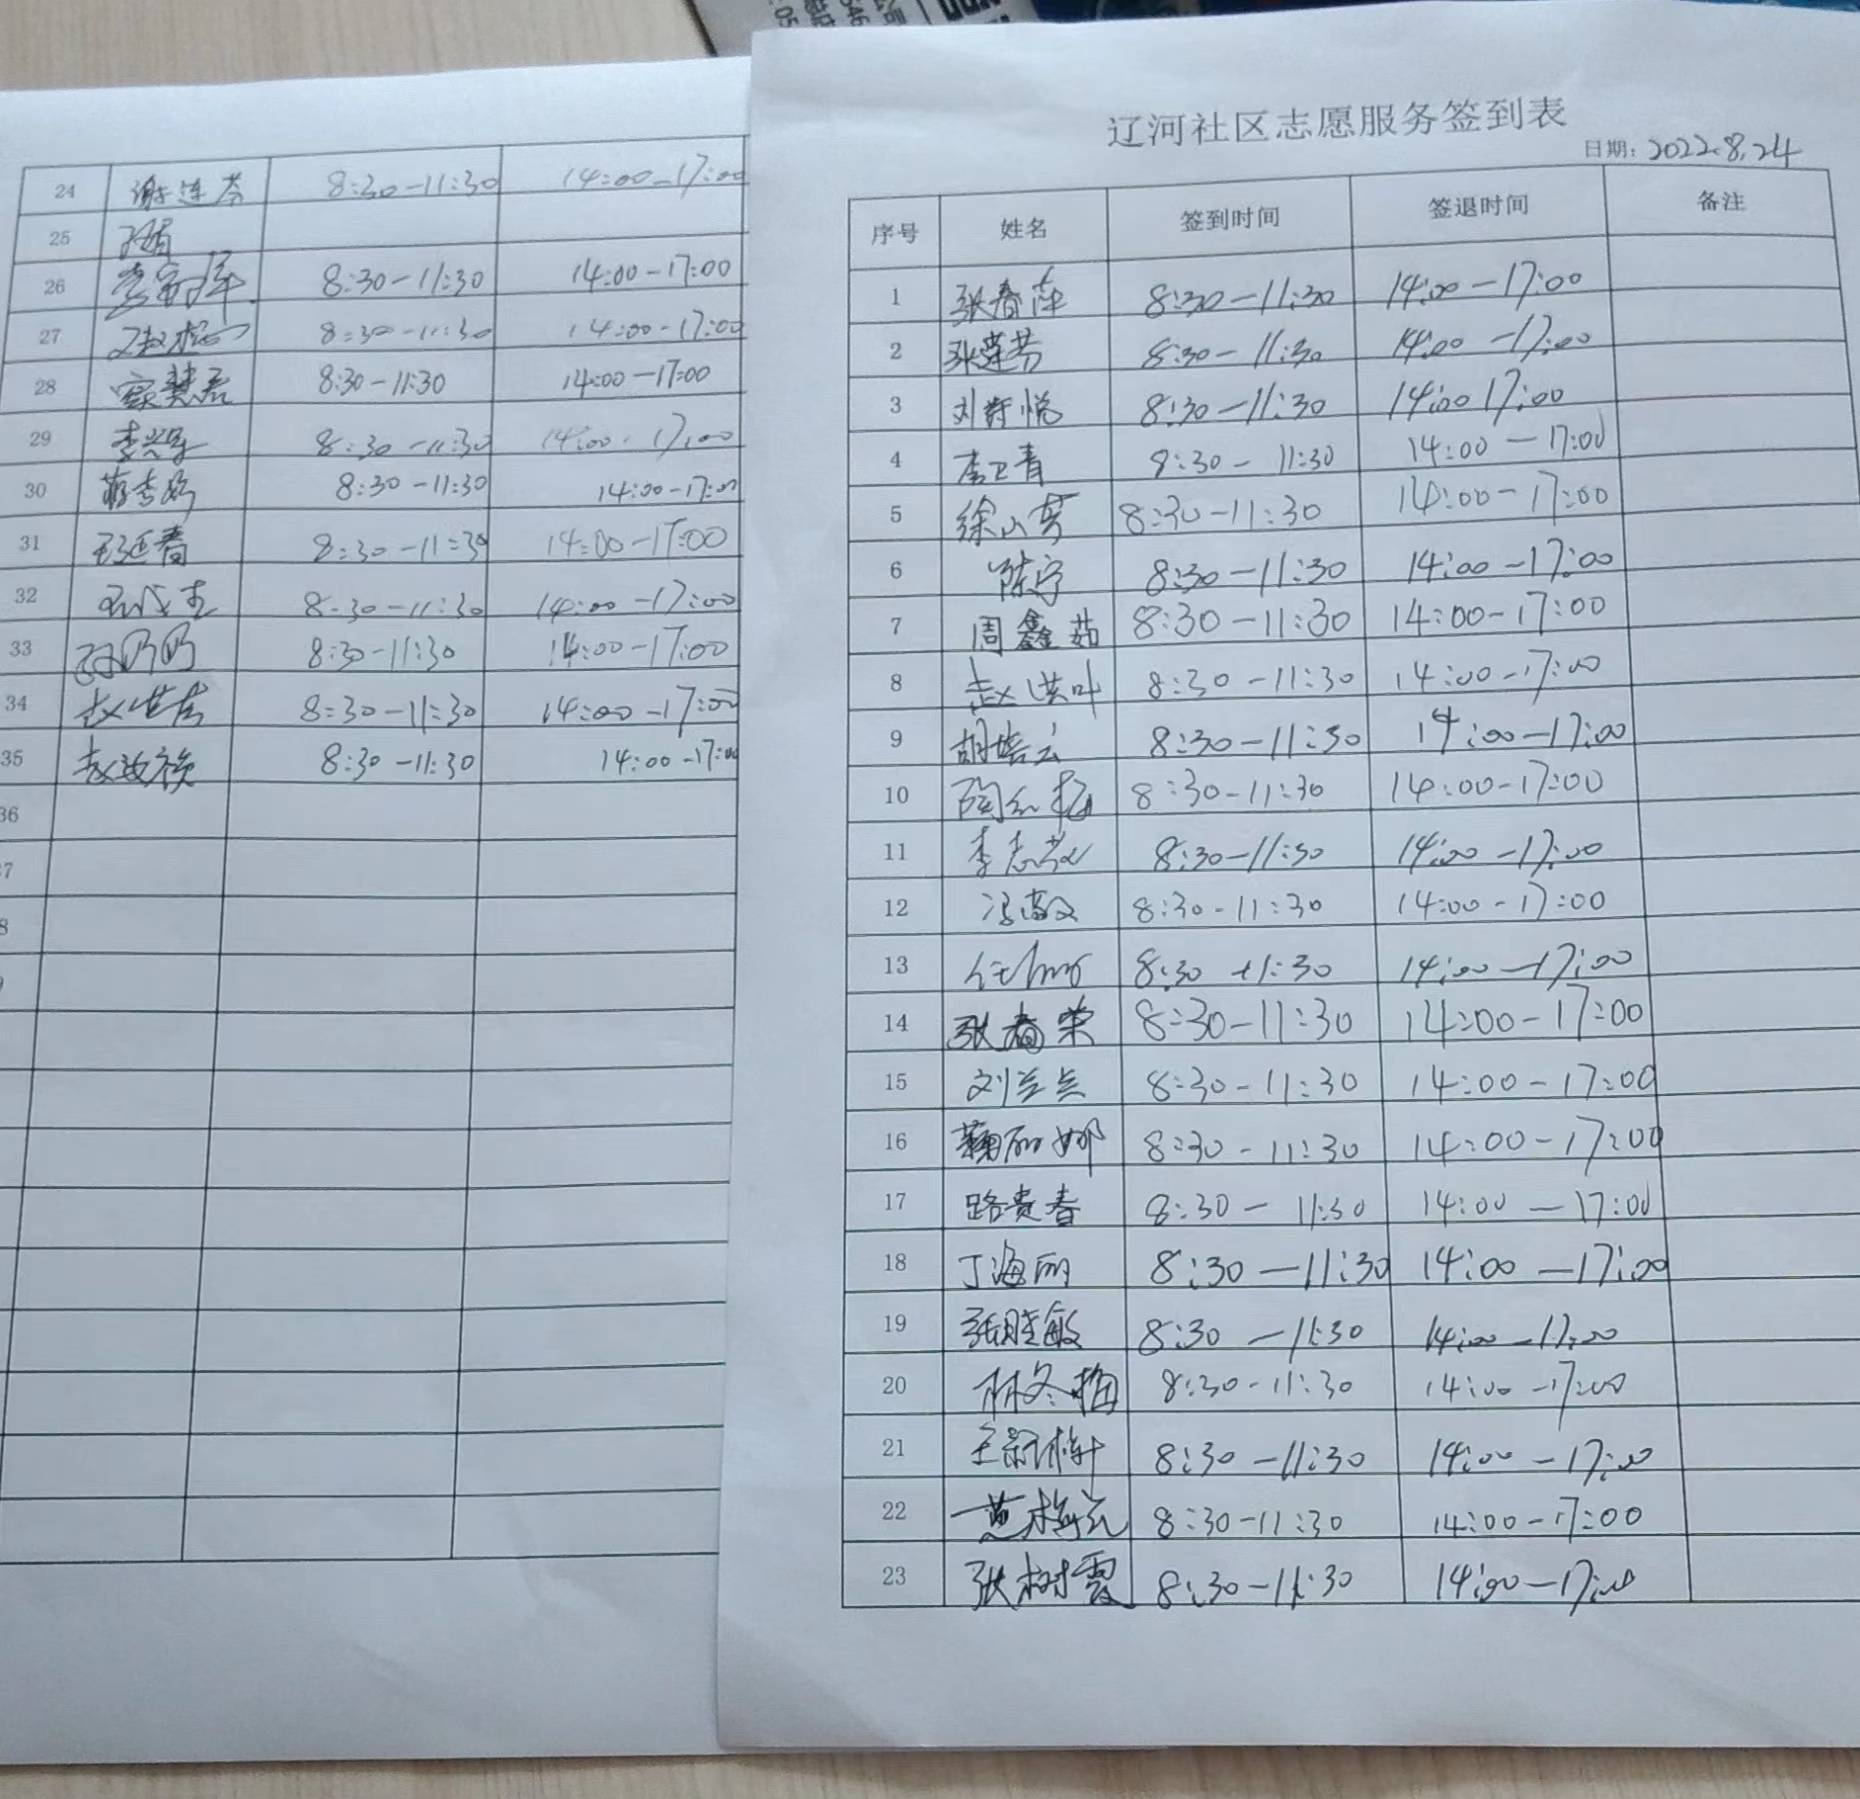 辽河社区志愿服务签到表
日期: 2022.8.24
序号 姓名 签到时间 签退时间 备注
1 张春萍 8:30-11:30 14:00-17:00
2 张莲芳 8:30-11:30 14:00-17:00
3 刘舒悦 8:30-11:30 14:00 17:00
4 李卫青 8:30-11:30 14:00-17:00
5 徐山芳 8:30-11:30 14:00-17:00
6 陈宇 8:30-11:30 14:00-17:00
7 周鑫茹 8:30-11:30 14:00-17:00
8 赵洪叶 8:30-11:30 14:00-17:00
9 胡培云 8:30-11:30 14:00-17:00
10 8:30-11:30 14:00-17:00
11 8:30-11:30 14:00-17:00
12 8:30-11:30 14:00-17:00
13 8:30-11:30 14:00-17:00
14 张春荣 8:30-11:30 14:00-17:00
15 刘兰兰 8:30-11:30 14:00-17:00
16 鞠丽娜 8:30-11:30 14:00-17:00
17 路贵春 8:30-11:30 14:00-17:00
18 丁海丽 8:30-11:30 14:00-17:00
19 张胜敏 8:30-11:30 14:00-17:00
20 林冬梅 8:30-11:30 14:00-17:00
21 8:30-11:30 14:00-17:00
22 黄梅云 8:30-11:30 14:00-17:00
23 张树霞 8:30-11:30 14:00-17:00
24 谢连芬 8:30-11:30 14:00-17:00
25
26 8:30-11:30 14:00-17:00
27 8:30-11:30 14:00-17:00
28 8:30-11:30 14:00-17:00
29 李兴军 8:30-11:30 14:00-17:00
30 8:30-11:30 14:00-17:00
31 王延春 8:30-11:30 14:00-17:00
32 8:30-11:30 14:00-17:00
33 8:30-11:30 14:00-17:00
34 8:30-11:30 14:00-17:00
35 8:30-11:30 14:00-17:00
36